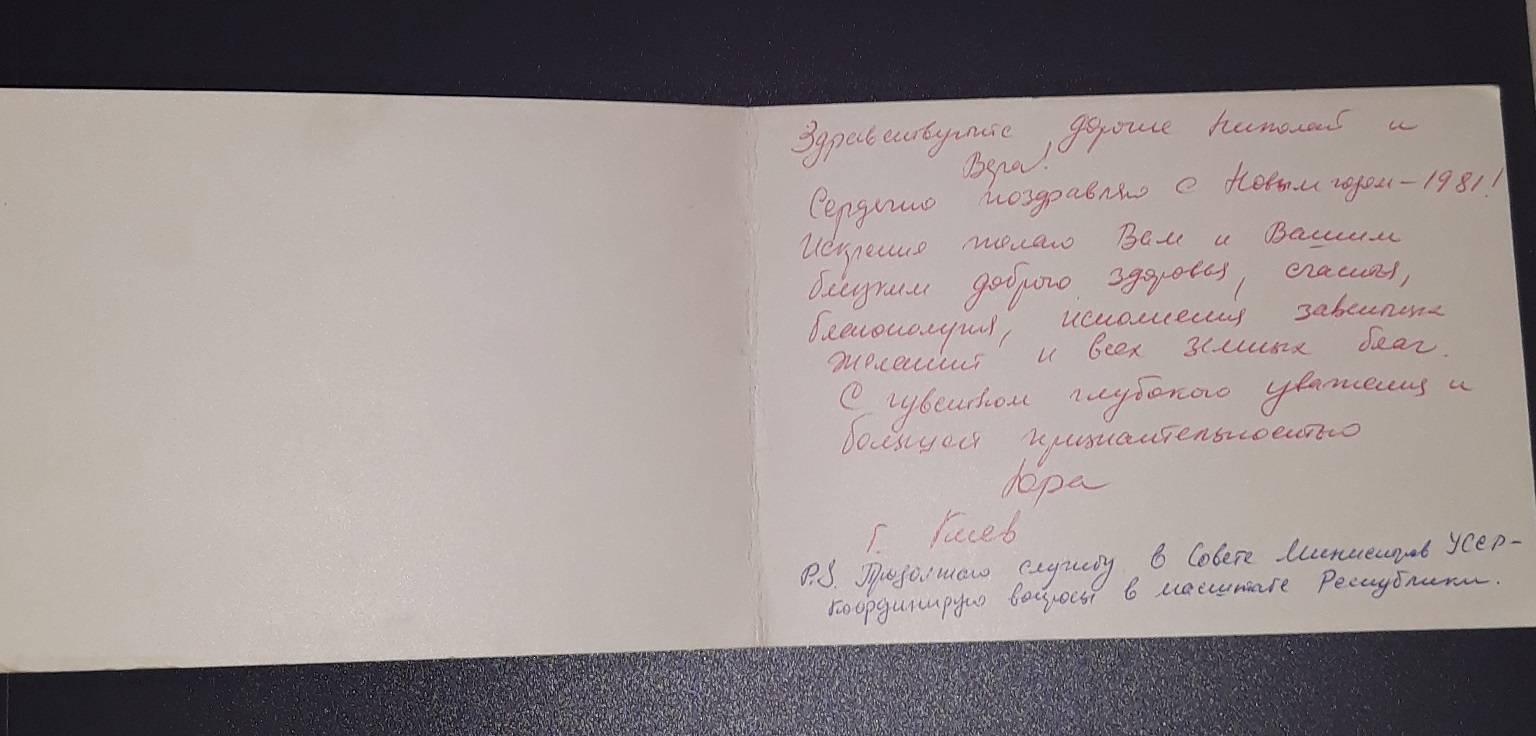 Здравствуйте, дорогие Николай и
Вера!
Сердечно поздравляю с Новым годом – 1981!
Искренне желаю Вам и Вашим
близким доброго здоровья, счастья,
благополучия, исполнения заветных
желаний и всех земных благ.
С чувством глубокого уважения и
большой признательностью
Юра
г. Киев
P.S. Продолжаю службу в Совете Министров УССР –
координирую вопросы в масштабе Республики.